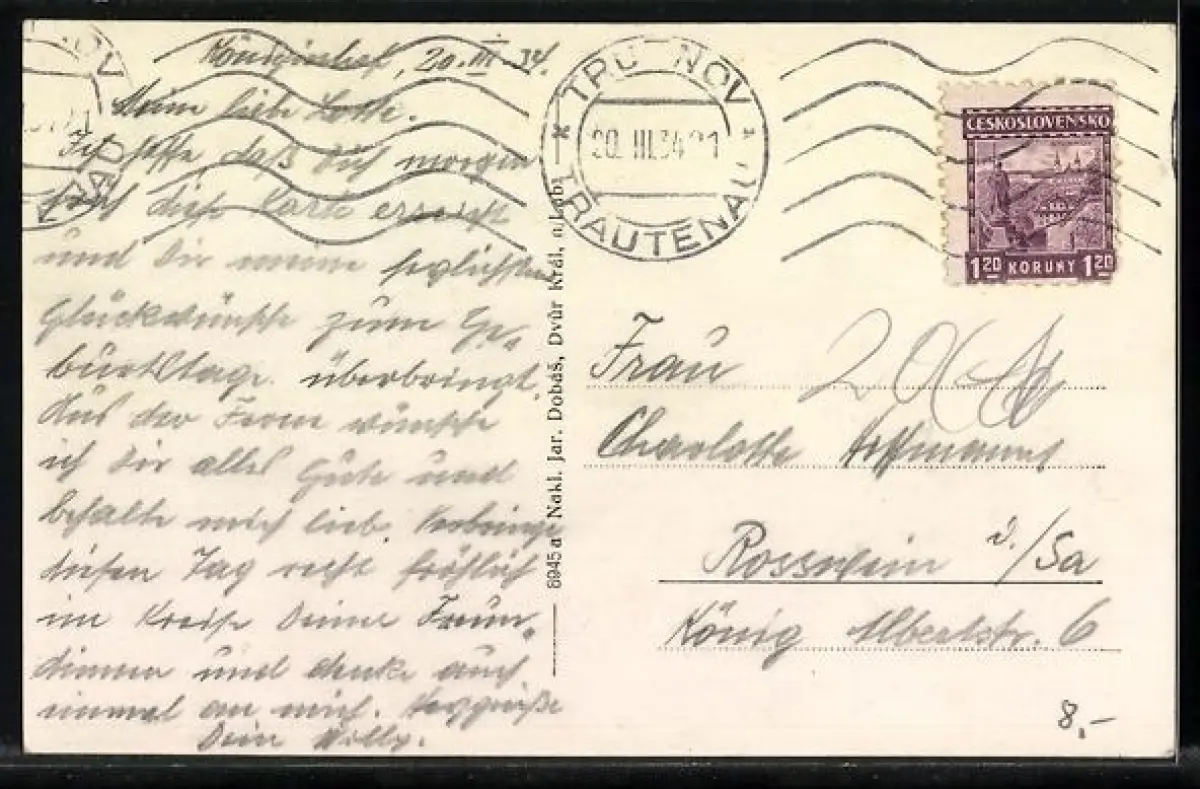 Königinhof, 20. III. 34.
Meine liebe Lotte.
Ich hoffe, daß Dich morgen
noch diese Karte erreicht
und Dir meine herzlichsten
Glückwünsche zum Ge„
burtstage überbringt.
Aus der Ferne wünsche
ich Dir alles Gute und
behalte mich lieb. Verbringe
diesen Tag recht fröhlich
im Kreise Deiner Freun„
dinnen und denke auch
einmal an mich. Herzgrüße
Dein Willy.
TRUTNOV
20. III. 34
TRAUTENAU
6945 a Nakl. Jar. Dobáš, Dvůr Král. n. Lab.
ČESKOSLOVENSKO
1 20 KORUNY 1 20
Frau
Charlotte Hoffmann
Rosswein i./Sa
König Albertstr. 6
8,-